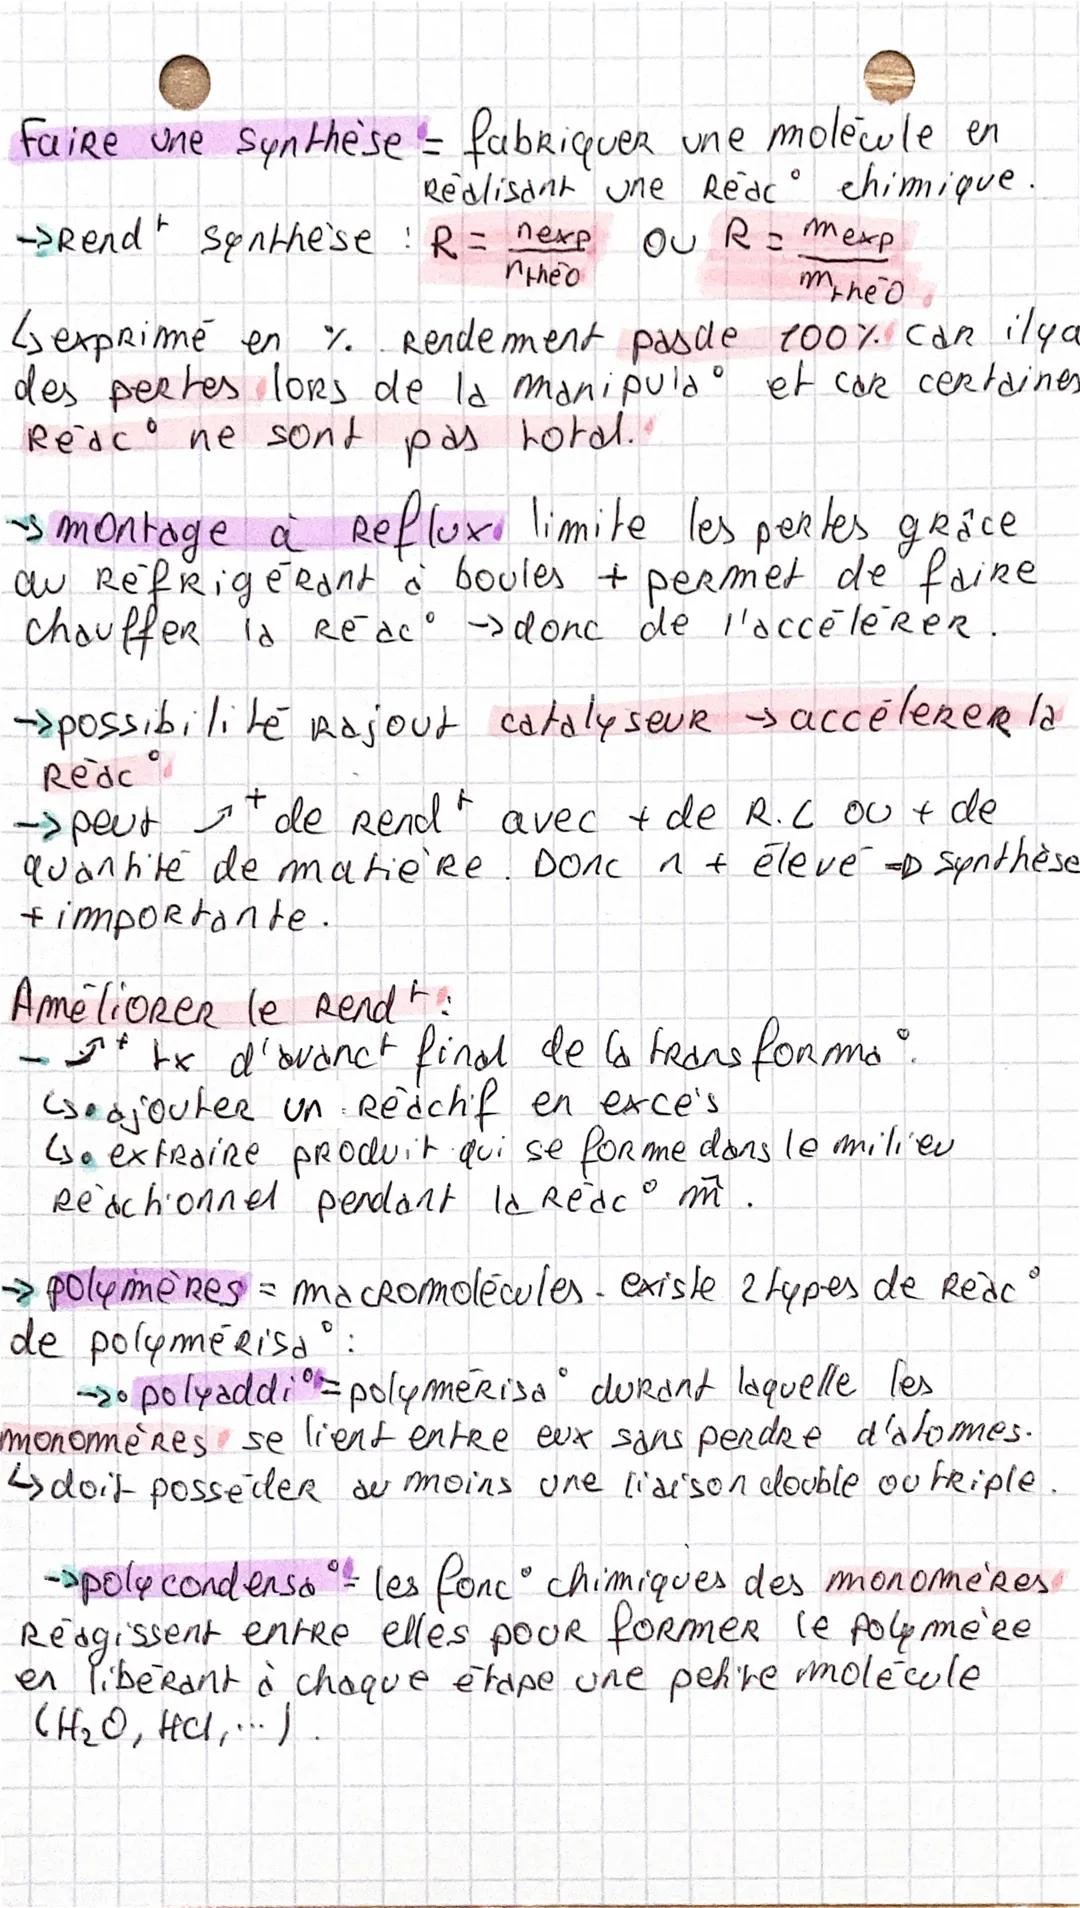 Faire une synthèse = fabriquer une molécule en
réalisant une réac° chimique.
→ Rend^t synthèse : R = nexp / nthéo OU R = mexp / mthéo.
↳ exprimé en %. Rendement pas de 100% car il y a
des pertes lors de la manipula° et car certaines
réac° ne sont pas total.
→ montage à Reflux limite les pertes grâce
au Réfrigérant à boules + permet de faire
chauffer la réac° → donc de l'accélérer.
→ possibilité rajout catalyseur → accélerer la
réac°
→ peut ↗+ de rend^t avec + de R.L ou + de
quantité de matière. Donc n + élevé ⇒ synthèse
+ importante.
Améliorer le rend^t :
- ↗+ tx d'avanc^t final de la transforma°.
↳• ajouter un réactif en excès
↳• extraire produit qui se forme dans le milieu
réactionnel pendant la réac° m̄.
→ polymères = macromolécules. existe 2 types de réac°
de polymérisa° :
→• polyaddi° = polymérisa° durant laquelle les
monomères se lient entre eux sans perdre d'atomes.
↳ doit posséder au moins une liaison double ou triple.
→ polycondensa° = les fonc° chimiques des monomères
réagissent entre elles pour former le polymère
en libérant à chaque étape une petite molécule
(H₂O, HCl, ...).